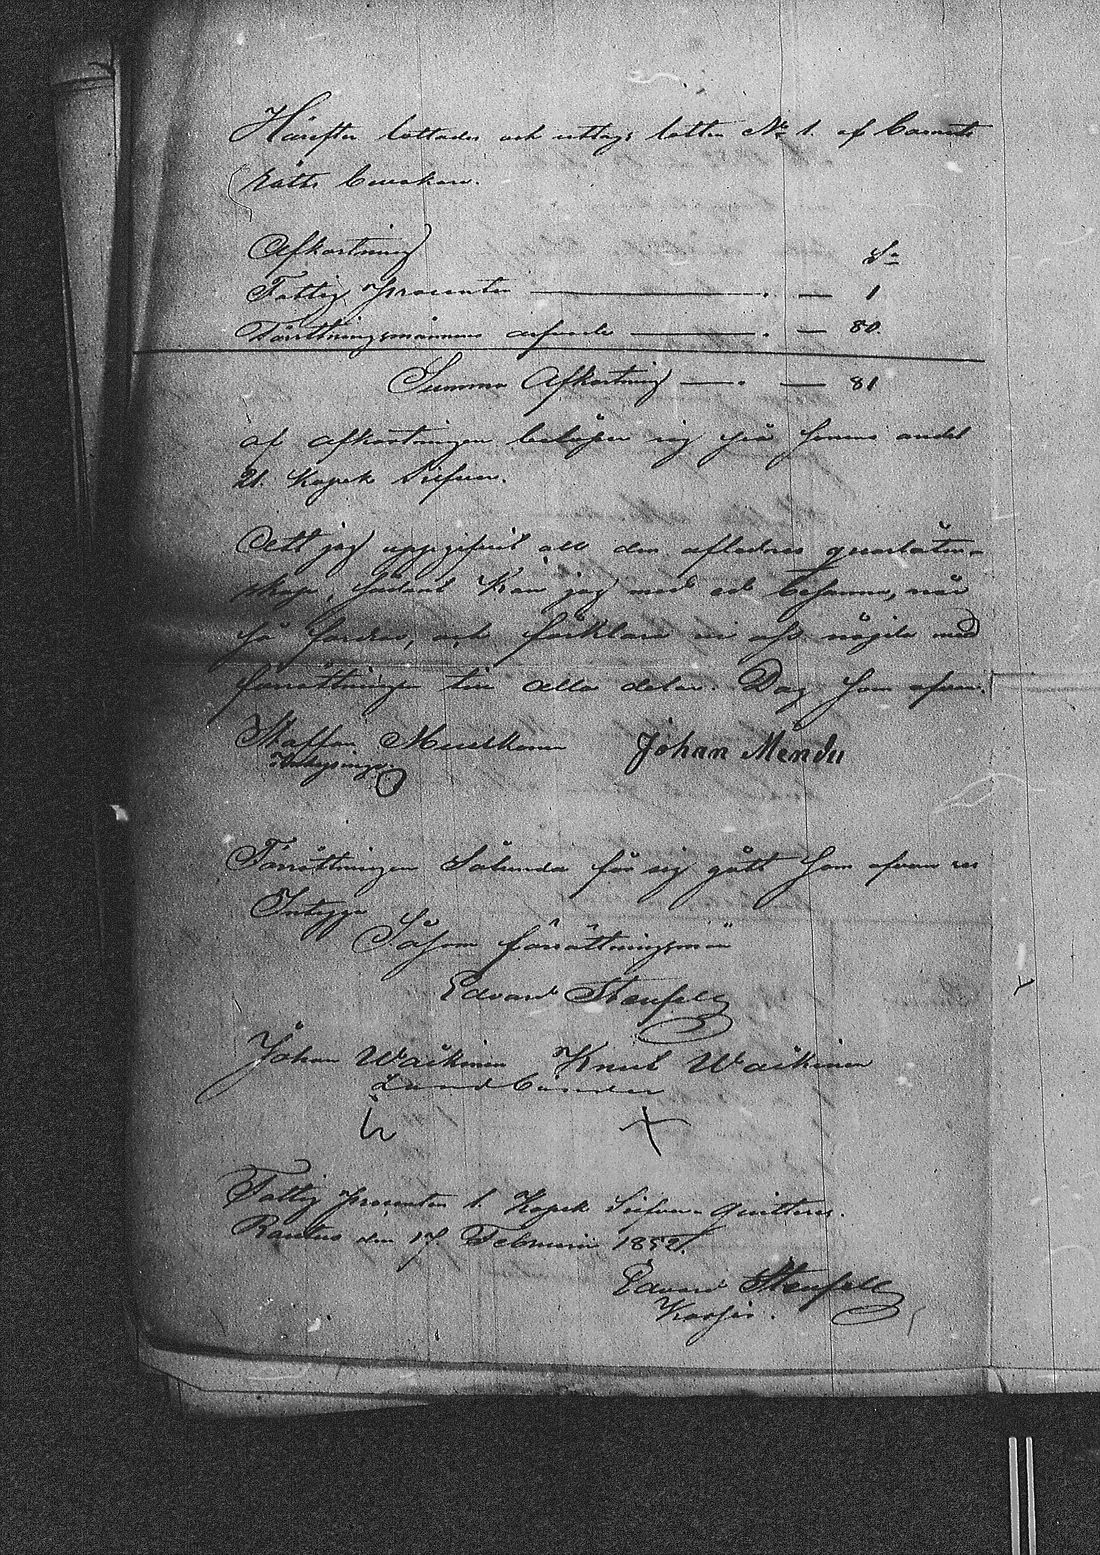 Härefter lottades och uttogs lotten No 1. af Barnets
rätts bevakare.
Afkortning S:a
Fattig procenten — 1
Förrättningsmännens arfvode — 80.
Summa Afkortning — 81
af afkortningen belöper sig på hvars andel
21. Kopek Silfver.
Att jag uppgifvit all den aflednes qvarlåten-
skap, sådant kan jag med ed besanna, när
så fordras, och förklara vi oss nöjda med
förrättningen till alla delar. Dag som ofvan.
Staffan Muukkonen Johan Mändu
Förrättningen sålunda för sig gått som ofvan es
Intyga
Såsom förrättningsmän
Edvard Stenfelt
Johan Waikinen Knut Waikinen
Landbönder
Fattig procenten 1. Kopek Silfver quitteras.
Rautus den 17 Februari 1852.
Edvard Stenfelt